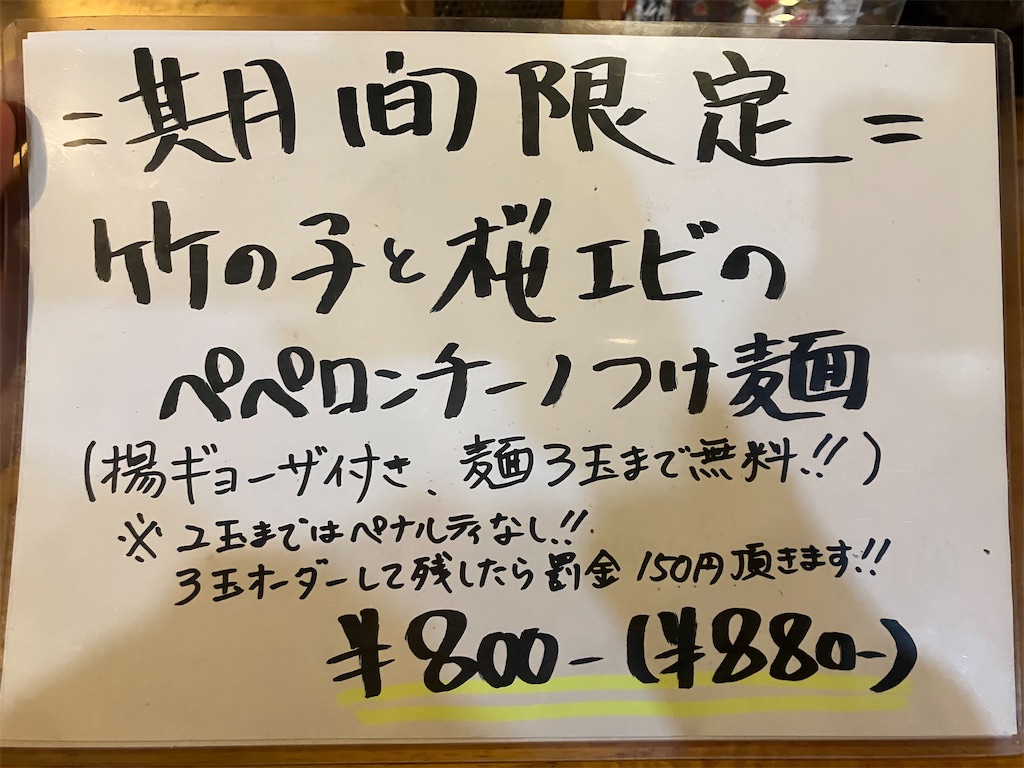 =期間限定=
竹の子と桜エビの
ペペロンチーノつけ麺
(揚ギョーザ付き、麺3玉まで無料!!)
※ 2玉まではペナルティなし!!
3玉オーダーして残したら罰金150円頂きます!!
¥800-(¥880-)